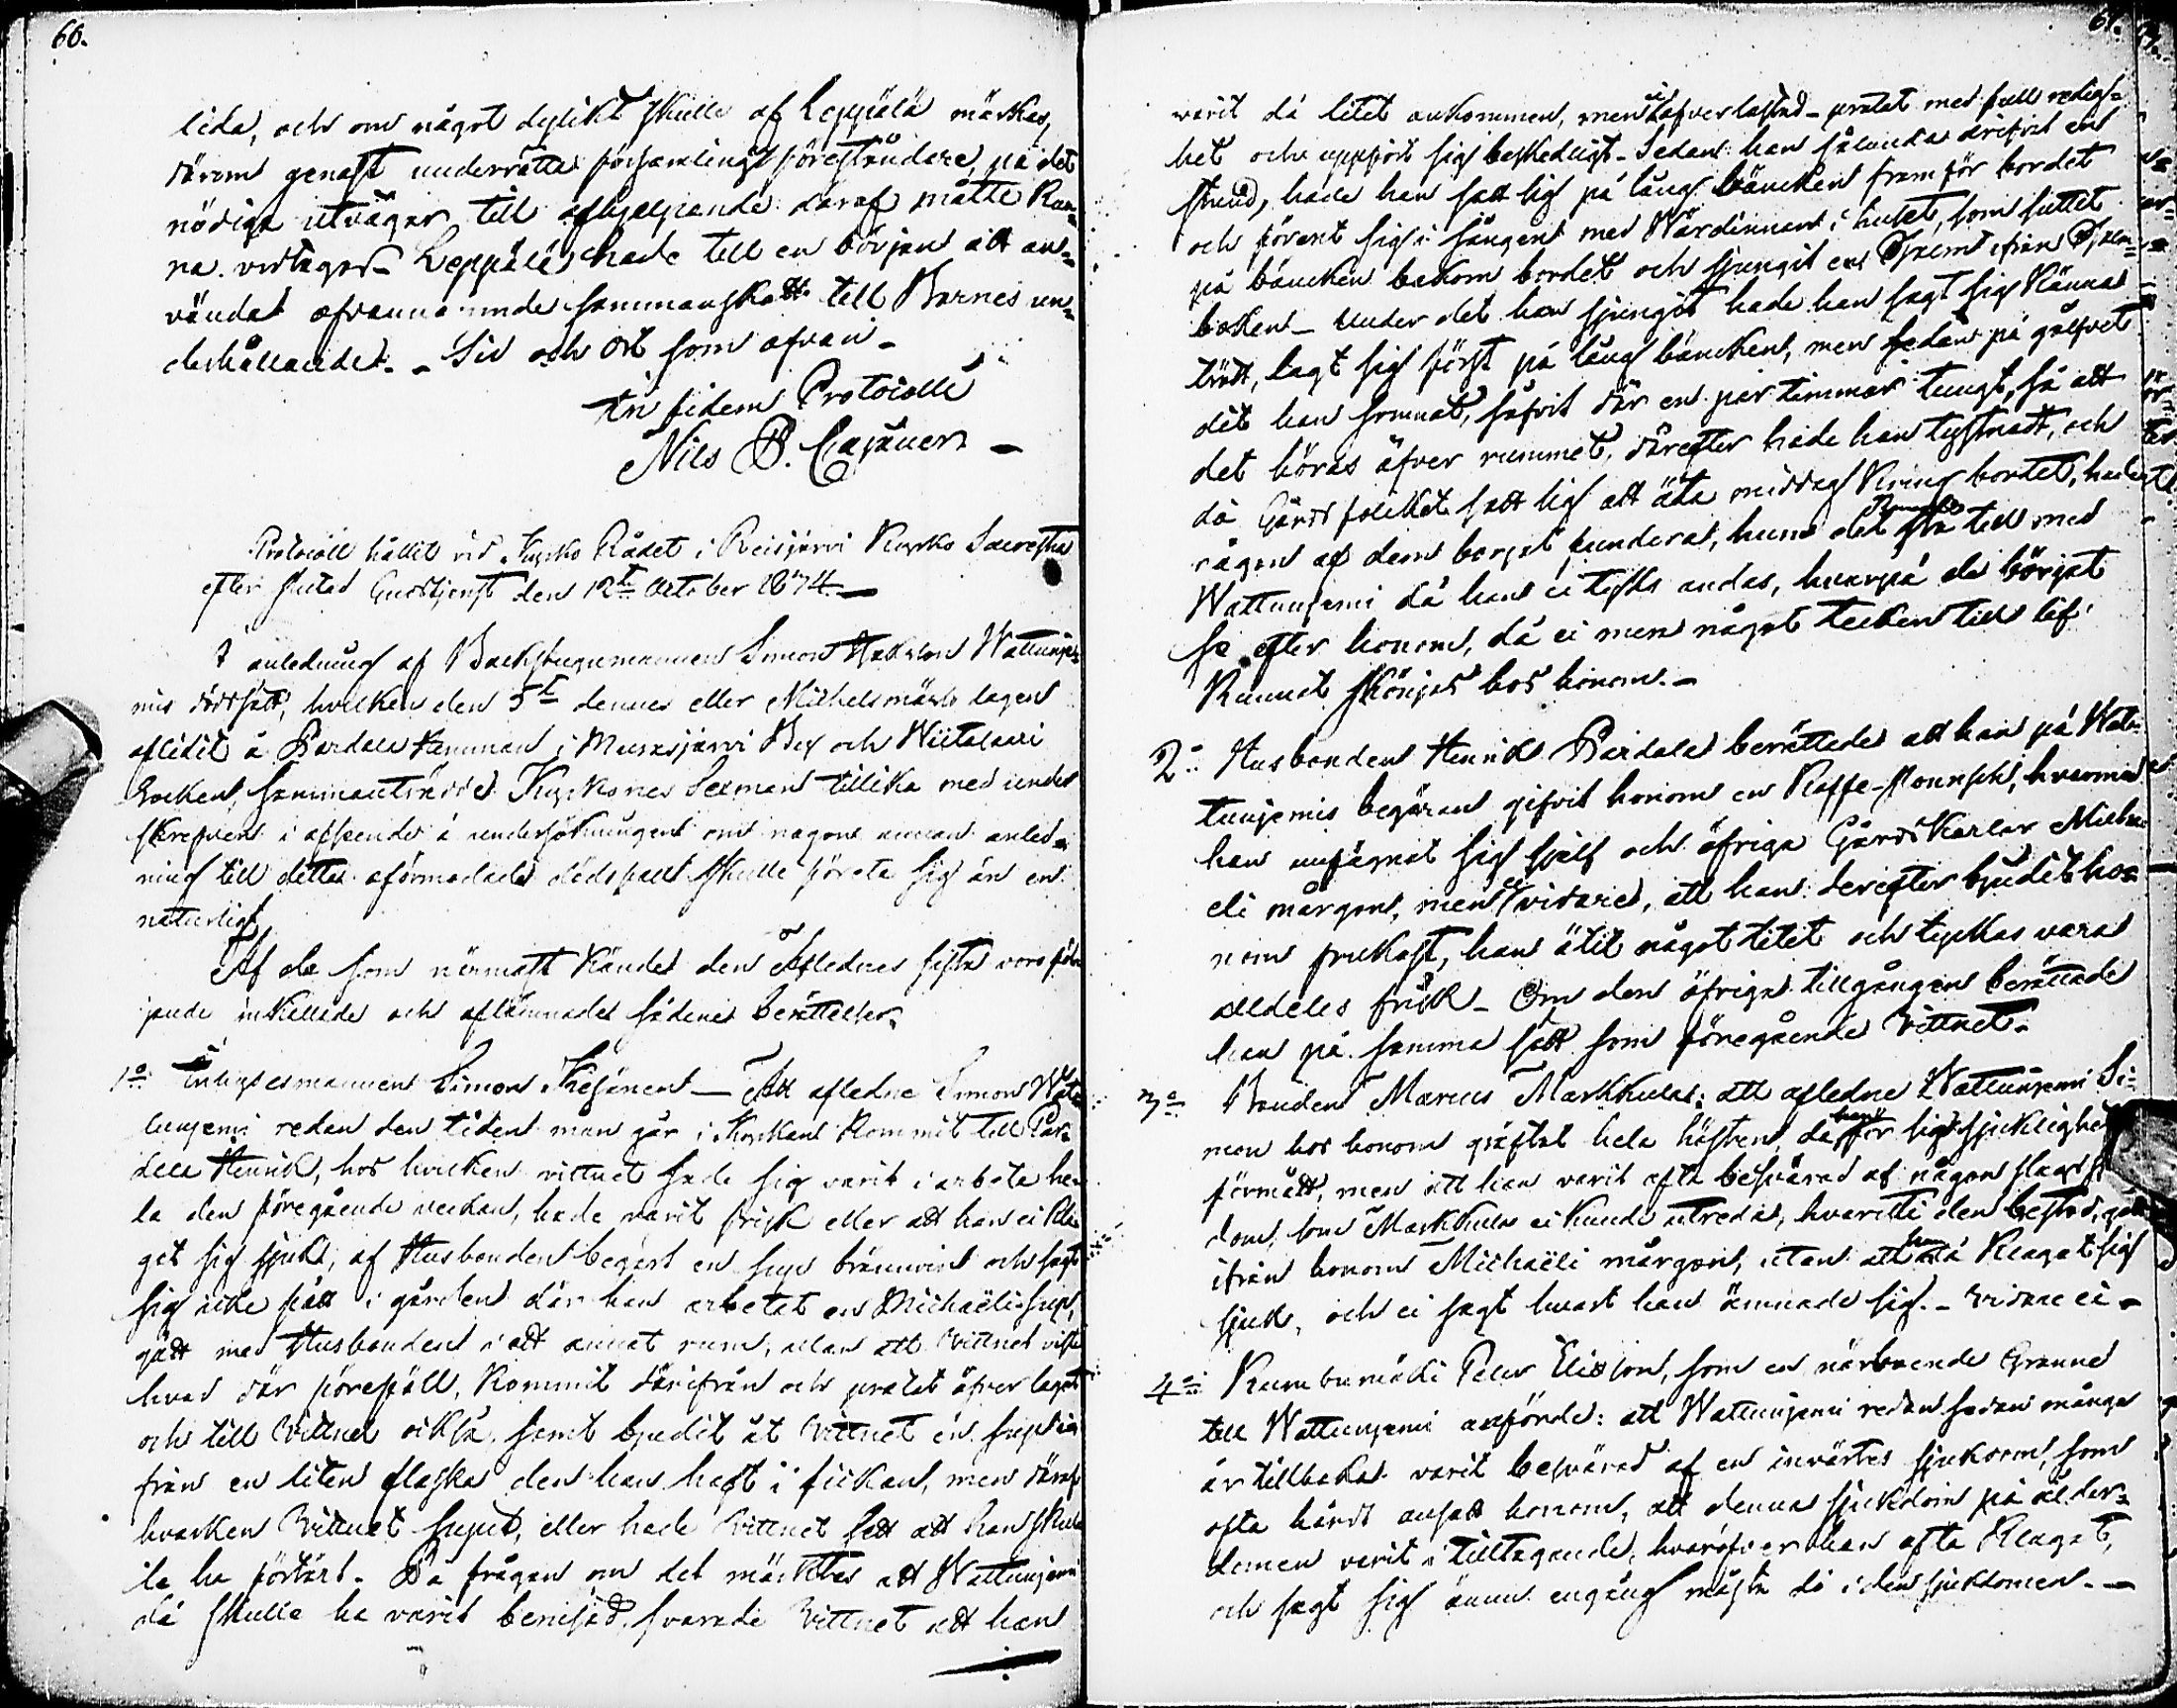 66.
lida, och om något dylikt skulle af Leppälä märkas,
därom genast underrätta församlings föreståndare, på det
nödiga utvägar till afhjelpande däraf måtte kun=
na vidtagas. Leppälä hade till en början att an=
vändat ofvannämnde sammanskott till Barnes un=
derhållande. _ Tid och Ort som ofvan _
In fidem Protocolli
Nils B. Cajanen _
Protocoll hållit vid Kyrko Rådet i Reisjärvi Kyrko Sacrestia
efter slutad Gudstjenst den 12te October 1874. _
I anledning af Backstugumannen Simon Wattunje=
mis dödssätt, hvilken den 5te dennes eller Michelsmässo dagen
aflidit å Pardala hemman i Muxasjärvi By och Wiitasari
Socken, sammanträdde Kyrkones Sexmän tillika med under
skrefven i afseende å undersökningen om någon annan anled=
ning till detta oförmodade dödsfall skulle förete sig än en
naturlig.
Af de som närmast kände den Aflednes sista voro föl
jande inkallade och aflämnade sådene berättelser.
1o Inhysesmannen Simon Kesänen _ Att aflidne Simon Wat=
tunjemi redan den tiden man går i Kyrkan kommit till Par=
dala Henrik, hos hvilken vittnet sade sig varit i arbete he=
la den föregående veckan, hade varit frisk eller att han ei kla=
gat sig sjuk, af Husbonden begärt en sup brännvin och sagt
sig icke fått i gården där han arbetat en Michaëli sup,
gått med Husbonden i ett annat rum, utan att Vittnet viste
hvad där förefall, kommit därifrån och pratat öfver laget
och till Vittnet också, samt bjudit åt Vittnet en sup
från en liten flaska den han haft i fickan, men däraf
hvarken Vittnet supit, eller hade Vittnet sett att han skul=
le ha förtärt. På frågan om det märktes att Wattunjemi
då skulle ha varit berusad, svarade Vittnet att han
67.
varit då litet ankommen, men ei öfverlastad _ pratat med full redig=
het och uppfört sig beskedligt _ Sedan han sålunda drifvit en
stund, hade han satt sig på lång bäncken framför bordet
och förent sig i sången med Wärdinnan i huset, som suttet
på bäncken bakom bordet och sjungit en Psalm ifrån Psalm=
boken _ Under det han sjungit hade han sagt sig känna
trött, lagt sig först på lång bäncken, men sedan på golfvet
dit han somnat, såfvit där en par timmar tungt, så att
det höras öfver rummet, därefter hade han tystnadt, och
då Gårdsfolket satt sig att äta middag kring bordet, hade
någon af dem börjat fundera, hum det står till med
Wattunjemi då han ei tycks andas, hvarpå de börjat
se efter honom, då ei mera något tecken till lif
kunnat skönjas hos honom. _
2o Husbonden Henrik Pardala berättade att han på Wat=
tunjemis begäran gifvit honom en Kaffe-Pounsch, hvarmed
han unfägnat sig sjelf och öfriga Gårds karlar Michae
eli morgon, men ei vidare, att han derefter bjudit ho=
nom frukost, han ätit något litet och tyckas vara
alldeles frisk _ Om den öfriga tillgången berättade
han på samma sätt som föregående Vittnet.
3o Bonden Marcus Markkula: att afledne Wattunjemi Si=
mon hos honom gräftat hela hösten, då han för sig sjuklighet
förmått, men att han varit ofta besvärad af någon slags sjuk
dom, som Markkula ei kunde utreda, hvaruti den bestod, gått
ifrån honom Michaëli morgon, utan att han då klagat sig
sjuk, och ei sagt hvart han ämnade sig. _ Vidare ei _
4o Kumbumäki Peter Elisson, som en närboende Granne
till Wattunjemi anförde: att Wattunjemi redan sedan många
år tillbaka varit besvärad af en invärtes sjukdom, som
ofta hårdt ansatt honom, att denna sjukdom på ålder=
domen varit i tilltagande, hvaröfver han ofta klagat,
och sagt sig ännu engång måste dö i den sjukdomen. _